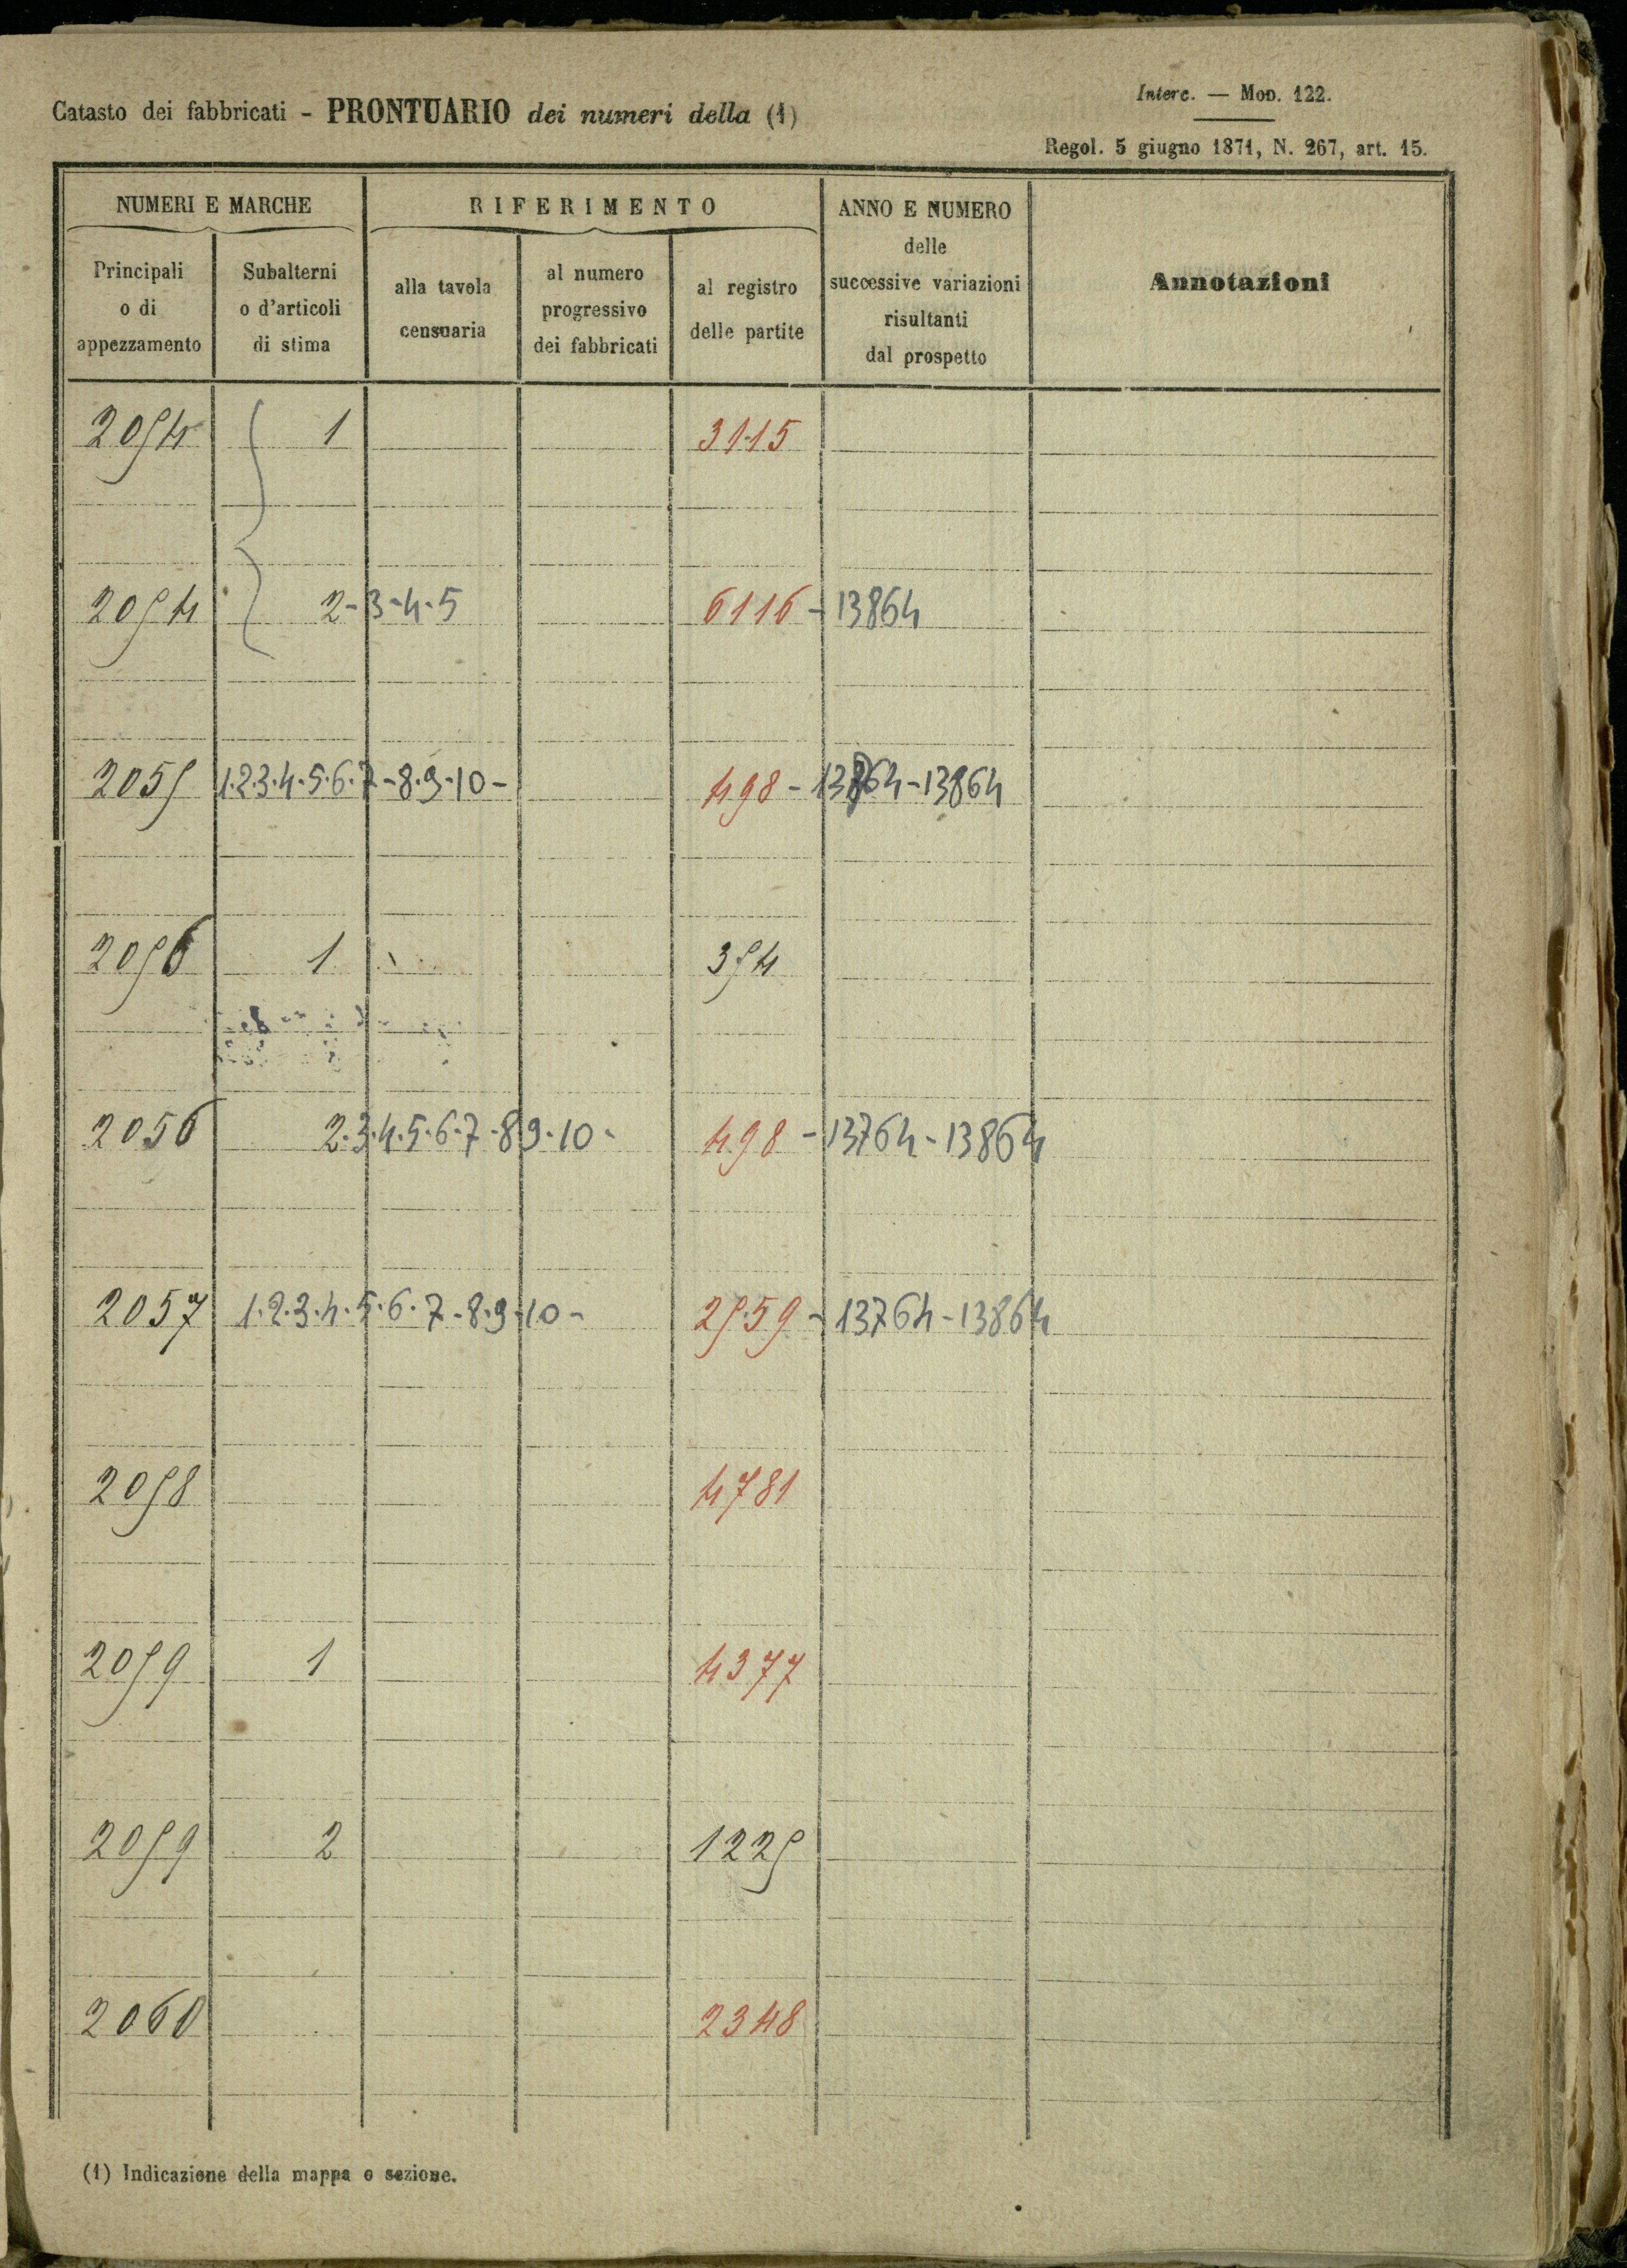 Interc. — Mod. 122.
Catasto dei fabbricati - PRONTUARIO dei numeri della (1)
Regol. 5 giugno 1871, N. 267, art. 15.
NUMERI E MARCHE
RIFERIMENTO
ANNO E NUMERO
delle
successive variazioni
risultanti
dal prospetto
Annotazioni
Principali
o di
appezzamento
Subalterni
o d'articoli
di stima
alla tavola
censuaria
al numero
progressivo
dei fabbricati
al registro
delle partite
2054 1 3115
2054 2-3-4-5 6116 - 13864
2055 1.2.3.4.5.6.7-8.9-10- 498 - 13764-13864
2056 1 354
2056 2.3.4.5.6.7-8 9-10- 498 - 13764-13864
2057 1.2.3.4.5.6.7-8.9-10- 2559 - 13764-13864
2058 4781
2059 1 4377
2059 2 1225
2060 2348
(1) Indicazione della mappa o sezione.